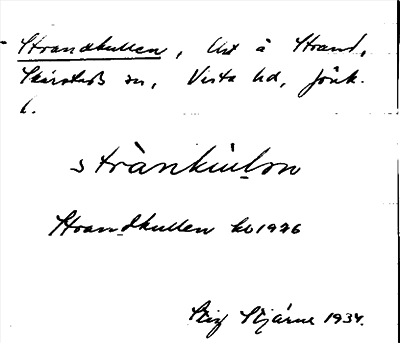 Strandkullen, Ust å Strand,
Skärstads sn, Vista hd, Jönk.
l.
strànkùlon
Strandkullen kb 1926
Stig Stjärne 1934.